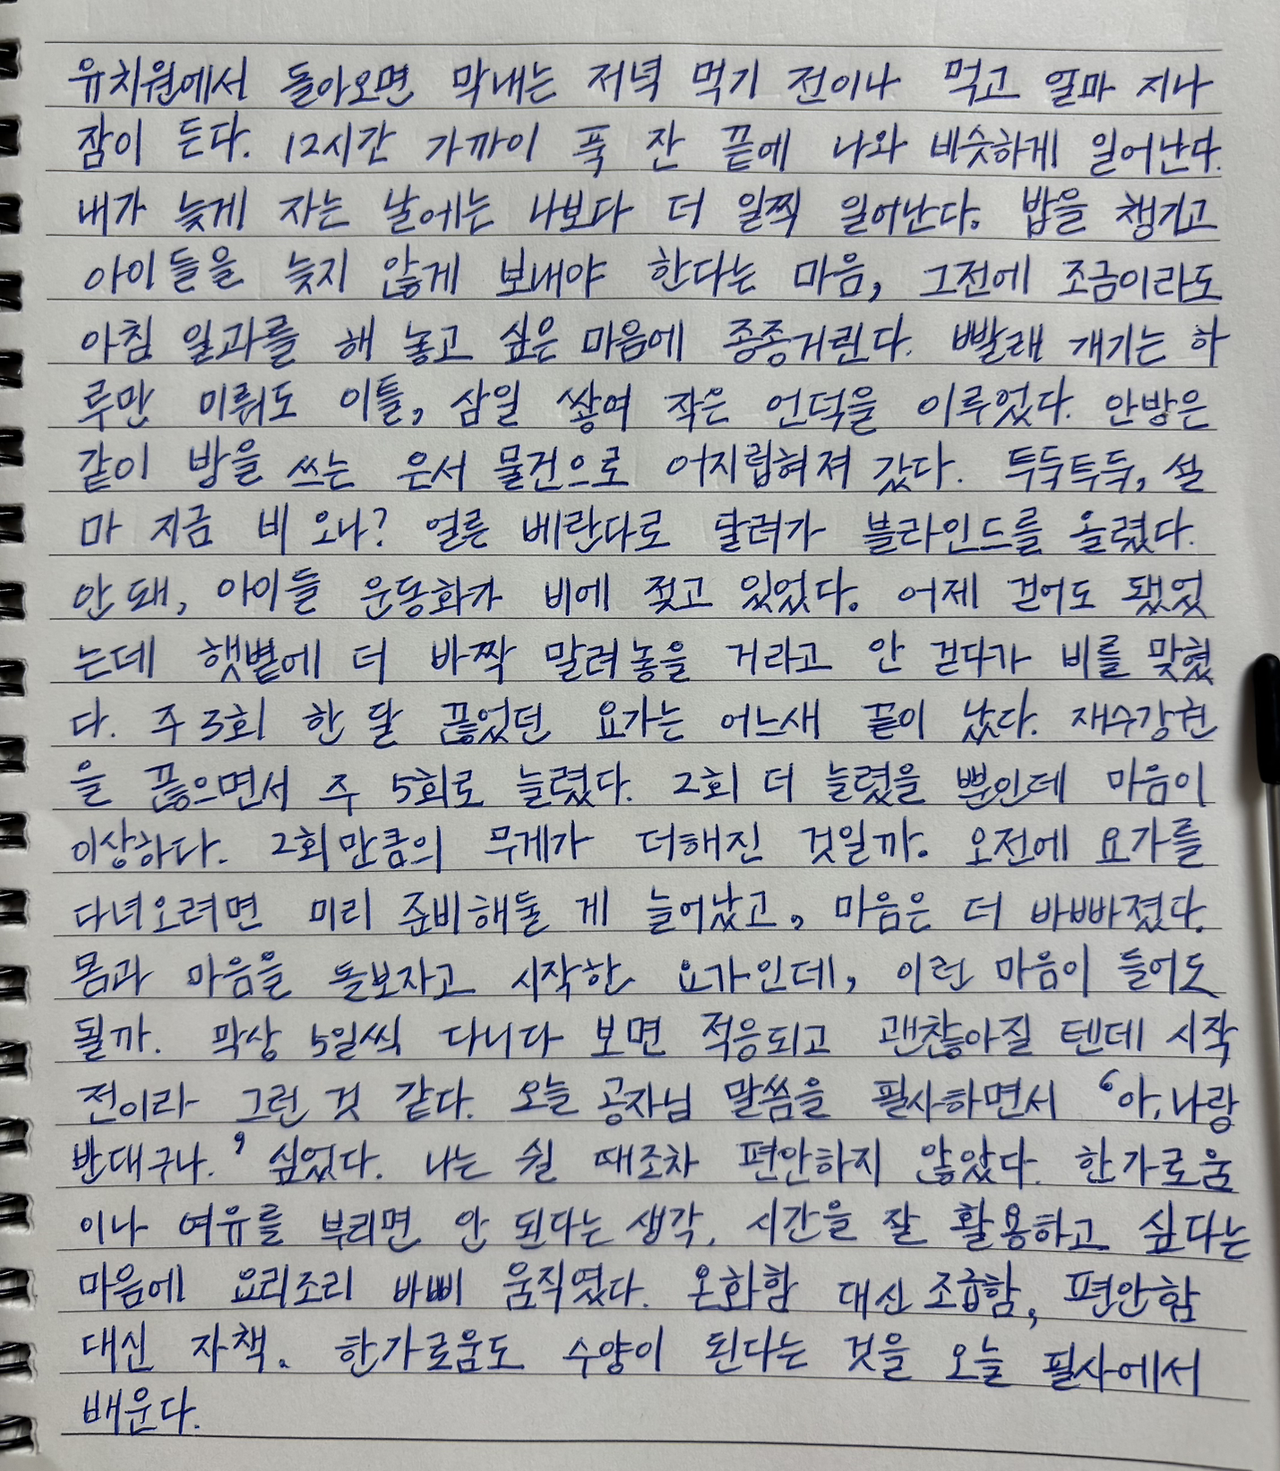 유치원에서 돌아오면 막내는 저녁 먹기 전이나 먹고 얼마 지나
잠이 든다. 12시간 가까이 푹 잔 끝에 나와 비슷하게 일어난다.
내가 늦게 자는 날에는 나보다 더 일찍 일어난다. 밥을 챙기고
아이들을 늦지 않게 보내야 한다는 마음, 그전에 조금이라도
아침 일과를 해 놓고 싶은 마음에 종종거린다. 빨래 개기는 하
루만 미뤄도 이틀, 삼일 쌓여 작은 언덕을 이루었다. 안방은
같이 방을 쓰는 은서 물건으로 어지럽혀져 갔다. 투둑투둑, 설
마 지금 비 오나? 얼른 베란다로 달려가 블라인드를 올렸다.
안 돼, 아이들 운동화가 비에 젖고 있었다. 어제 걷어도 됐었
는데 햇볕에 더 바짝 말려놓을 거라고 안 걷다가 비를 맞혔
다. 주 3회 한 달 끊었던 요가는 어느새 끝이 났다. 재수강권
을 끊으면서 주 5회로 늘렸다. 2회 더 늘렸을 뿐인데 마음이
이상하다. 2회만큼의 무게가 더해진 것일까. 오전에 요가를
다녀오려면 미리 준비해둘 게 늘어났고, 마음은 더 바빠졌다.
몸과 마음을 돌보자고 시작한 요가인데, 이런 마음이 들어도
될까. 막상 5일씩 다니다 보면 적응되고 괜찮아질 텐데 시작
전이라 그런 것 같다. 오늘 공자님 말씀을 필사하면서 '아, 나랑
반대구나.' 싶었다. 나는 쉴 때조차 편안하지 않았다. 한가로움
이나 여유를 부리면 안 된다는 생각, 시간을 잘 활용하고 싶다는
마음에 요리조리 바삐 움직였다. 온화함 대신 조급함, 편안함
대신 자책. 한가로움도 수양이 된다는 것을 오늘 필사에서
배운다.